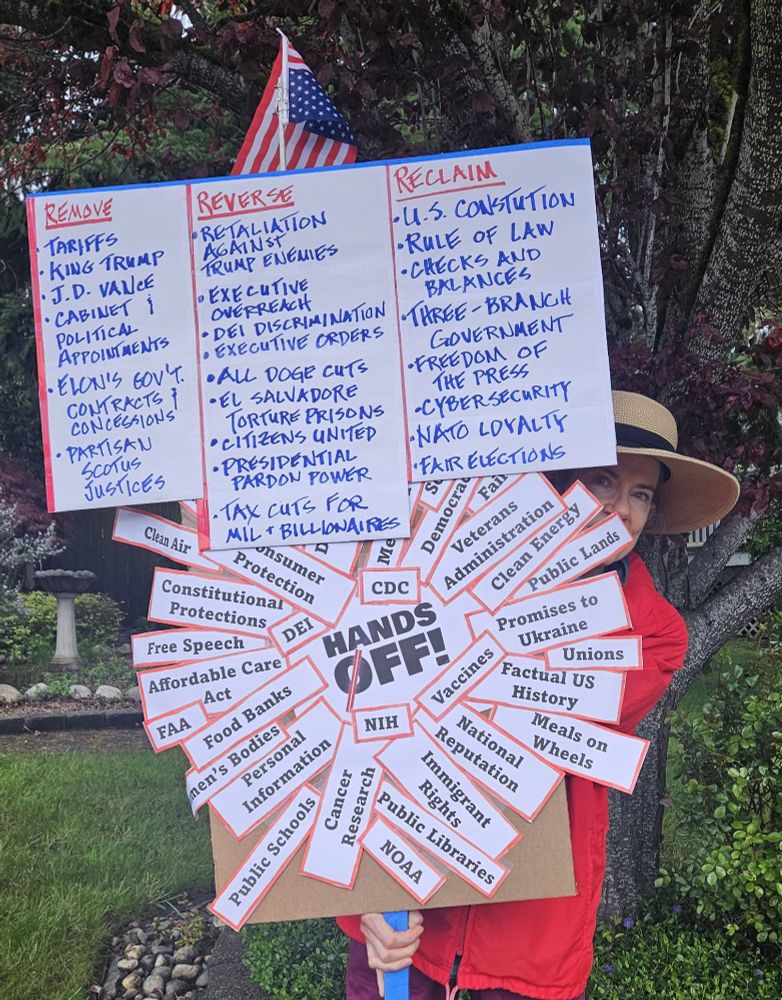 REMOVE
• TARIFFS
• KING TRUMP
• J.D. VANCE
• CABINET &
POLITICAL
APPOINTMENTS
• ELON'S GOV'T.
CONTRACTS &
CONCESSIONS
• PARTISAN
SCOTUS
JUSTICES
REVERSE
• RETALIATION
AGAINST
TRUMP ENEMIES
• EXECUTIVE
OVERREACH
• DEI DISCRIMINATION
• EXECUTIVE ORDERS
• ALL DOGE CUTS
• EL SALVADORE
TORTURE PRISONS
• CITIZENS UNITED
• PRESIDENTIAL
PARDON POWER
• TAX CUTS FOR
MIL + BILLIONAIRES
RECLAIM
• U.S. CONSTUTION
• RULE OF LAW
• CHECKS AND
BALANCES
• THREE-BRANCH
GOVERNMENT
• FREEDOM OF
THE PRESS
• CYBERSECURITY
• NATO LOYALTY
• FAIR ELECTIONS
Clean Air
onsumer
Protection
D
Me
Democra
Fair
Veterans
Administration
Clean Energy
Public Lands
CDC
Constitutional
Protections
DEI
HANDS
OFF!
Promises to
Ukraine
Free Speech
Unions
Affordable Care
Act
Vaccines
Factual US
History
FAA
Food Banks
NIH
National
Reputation
Meals on
Wheels
men's Bodies
Personal
Information
Cancer
Research
Immigrant
Rights
Public Schools
Public Libraries
NOAA